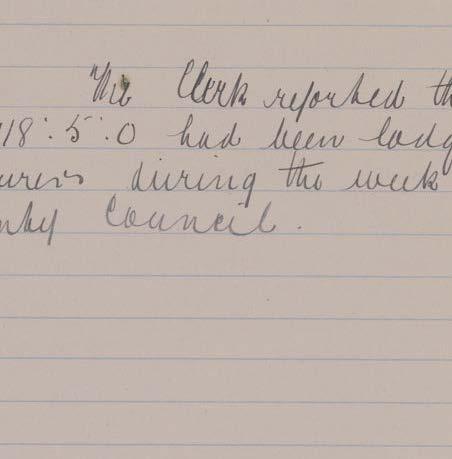 The Clerk reported th
18:5:0 had been lodg
urers during the week
nty Council.